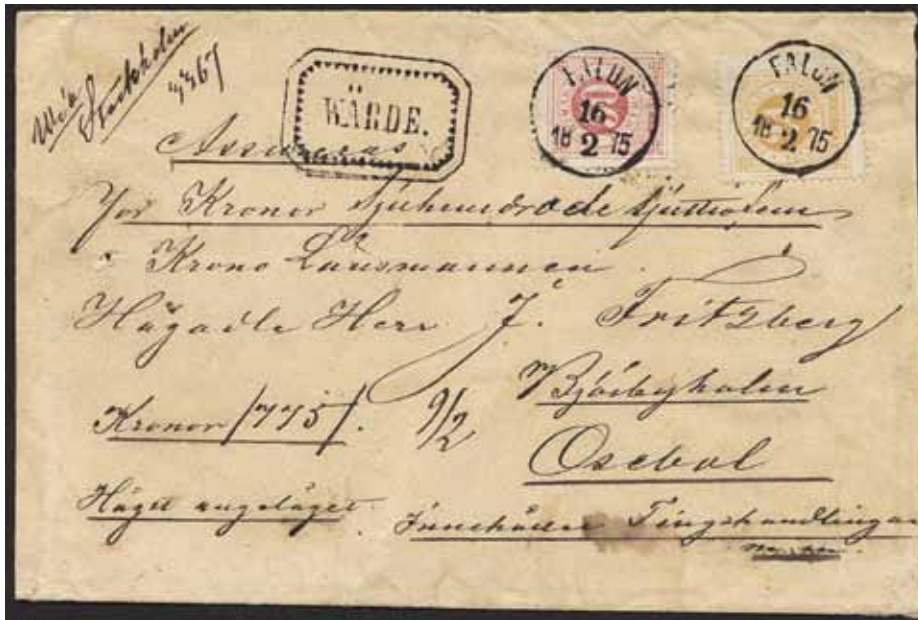 Via
Stockholm
4467
WÄRDE.
FALUN
16
18 2 75
FALUN
16
18 2 75
Assureras
för Kronor Sjuhundrade sjuttiofem
Krono Länsmannen
Högädle Herr J. Fritzberg
Björbyholm
Kronor /775/. 9/2
Osebol
Högst angeläget.
Innehåller Tingshandlingar